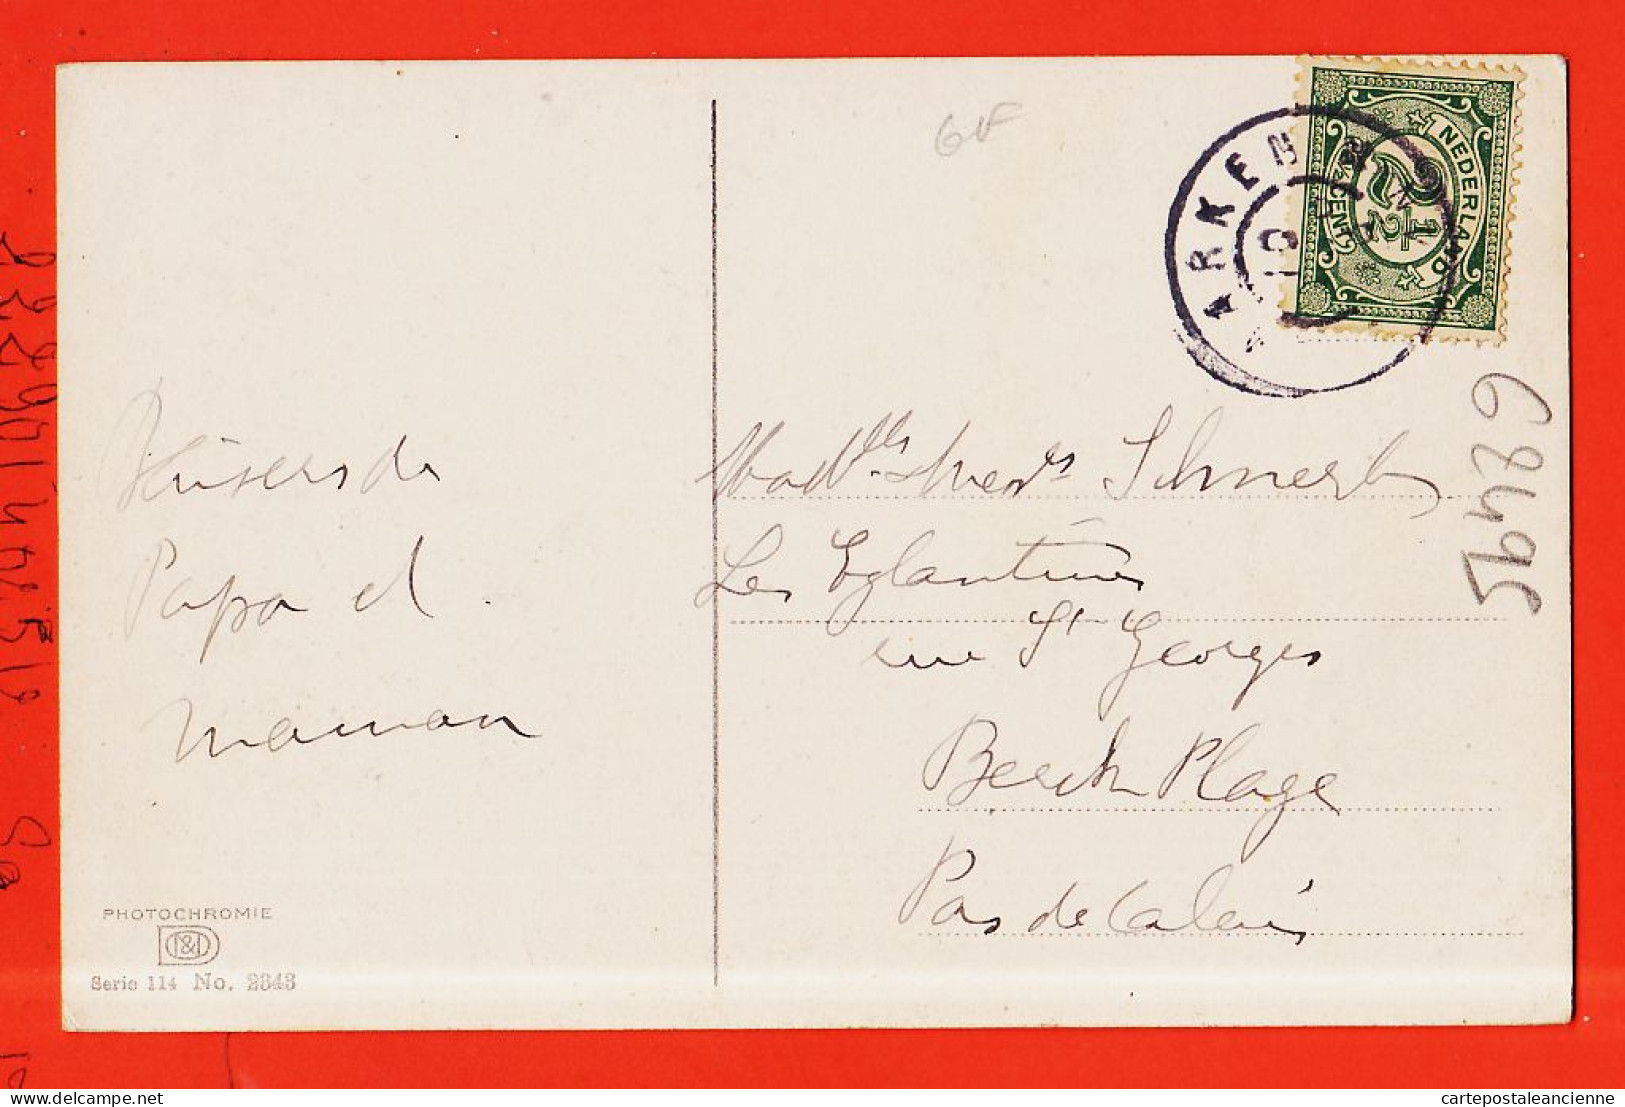 6F
MARKEN
NEDERLAND
2 1/2
2½ CENT
Baisers de
Papa et
maman
Madlles
Les Eglantines
rue St Georges
Berck Plage
Pas de Calais
PHOTOCHROMIE
D&D
Serie 114 No. 2343
delcampe.net
cartepostaleancienne